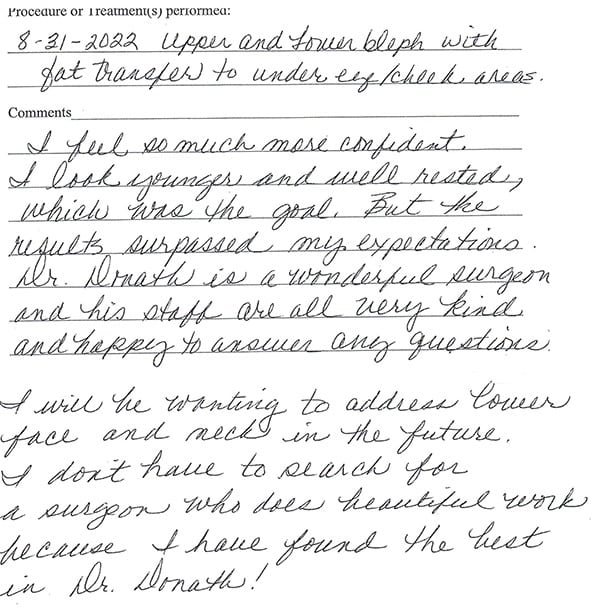 Procedure or Treatment(s) performed:
8-31-2022 Upper and Lower bleph with
fat transfer to under eye/cheek areas.
Comments
I feel so much more confident.
I look younger and well rested,
which was the goal. But the
results surpassed my expectations.
Dr. Donath is a wonderful surgeon
and his staff are all very kind
and happy to answer any questions.
I will be wanting to address lower
face and neck in the future.
I don't have to search for
a surgeon who does beautiful work
because I have found the best
in Dr. Donath!